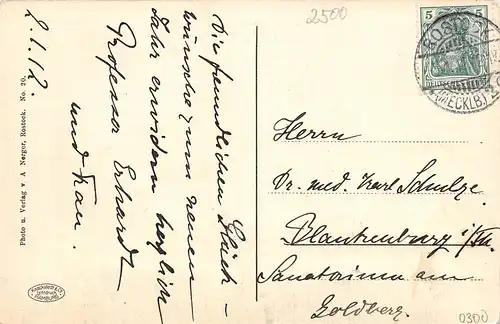 2500
2.1.12.
Die freundlichen Glück-
wünsche zum neuen
Jahr erwidern herzlich
Professor Erhardt
und Frau.
Photo u. Verlag v. A Nerger, Rostock. No. 20.
5
ROSTOCK
(MECKLB.)
Herrn
Dr. med. Karl Schulze
Blankenburg i/Th.
Sanatorium am
Goldberg.
0300